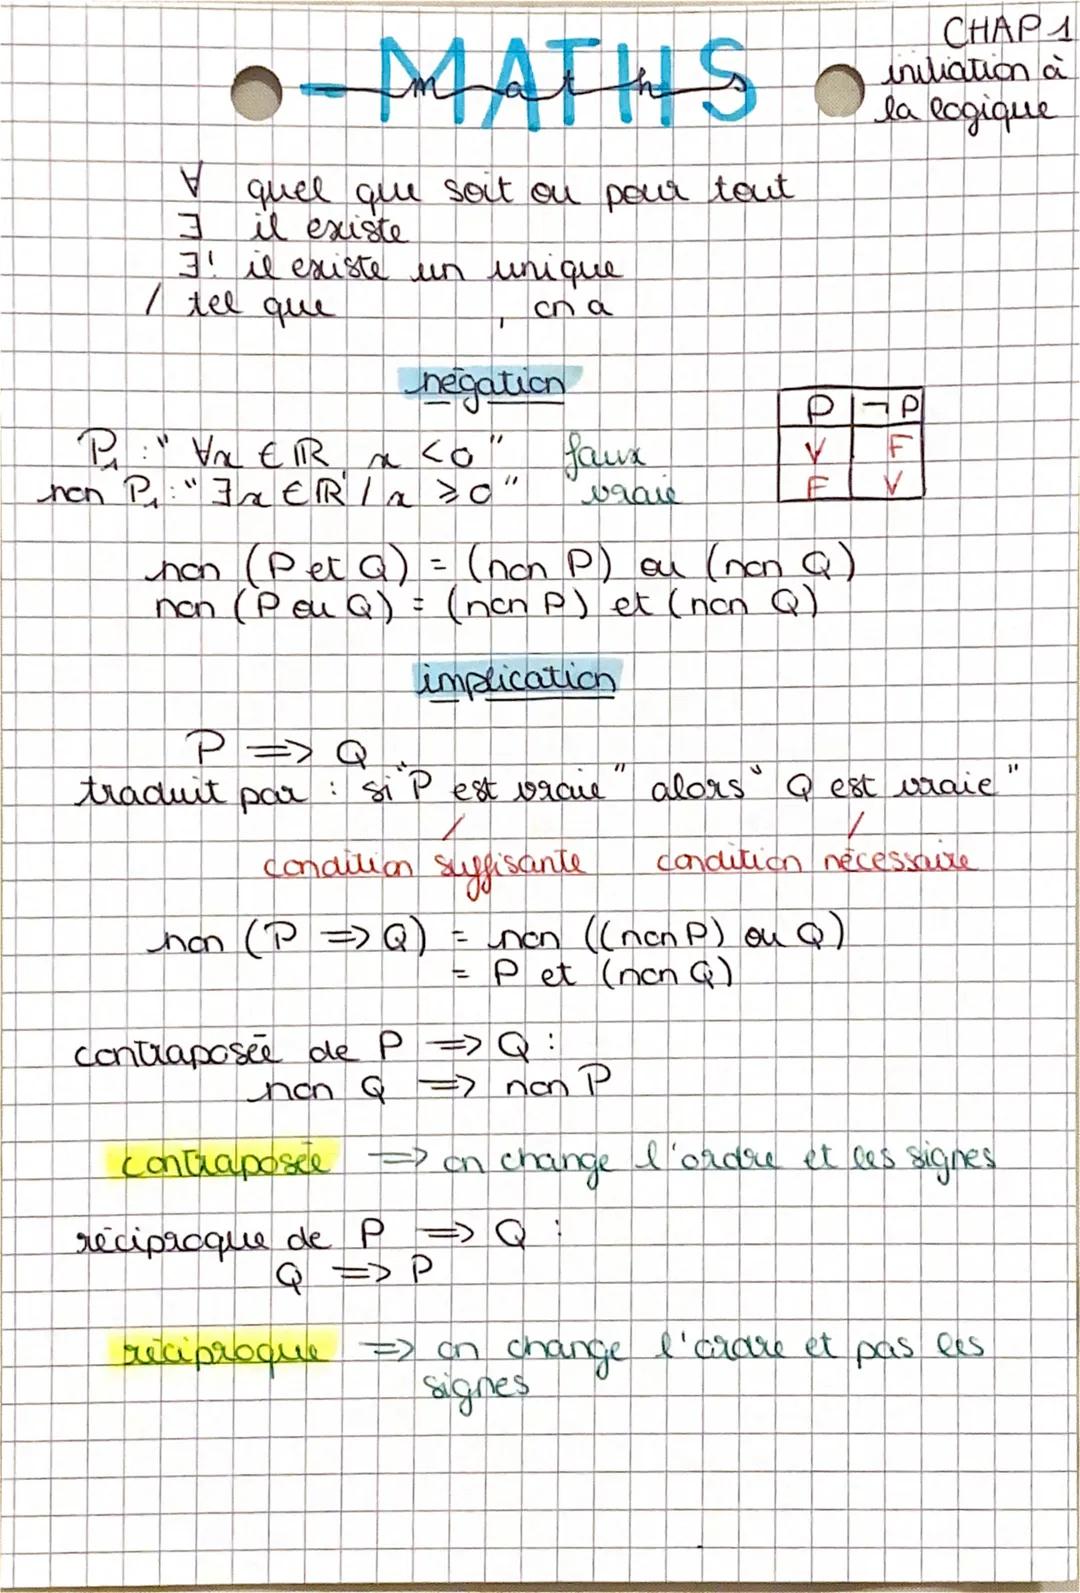 MATHS
maths
CHAP 1
initiation à
la logique
∀ quel que soit ou pour tout
∃ il existe
∃! il existe un unique
/ tel que , on a
négation
P | ¬P
V | F
F | V
P₁ : " ∀x ∈ ℝ, x < 0 " faux
non P₁ : " ∃x ∈ ℝ / x ⩾ 0 " vraie
non (P et Q) = (non P) ou (non Q)
non (P ou Q) = (non P) et (non Q)
implication
P => Q
traduit par : si "P est vraie" alors "Q est vraie"
/ /
condition suffisante condition nécessaire
non (P => Q) = non ((non P) ou Q)
= P et (non Q)
contraposée de P => Q :
non Q => non P
contraposée => on change l'ordre et les signes
réciproque de P => Q :
Q => P
réciproque => on change l'ordre et pas les
signes